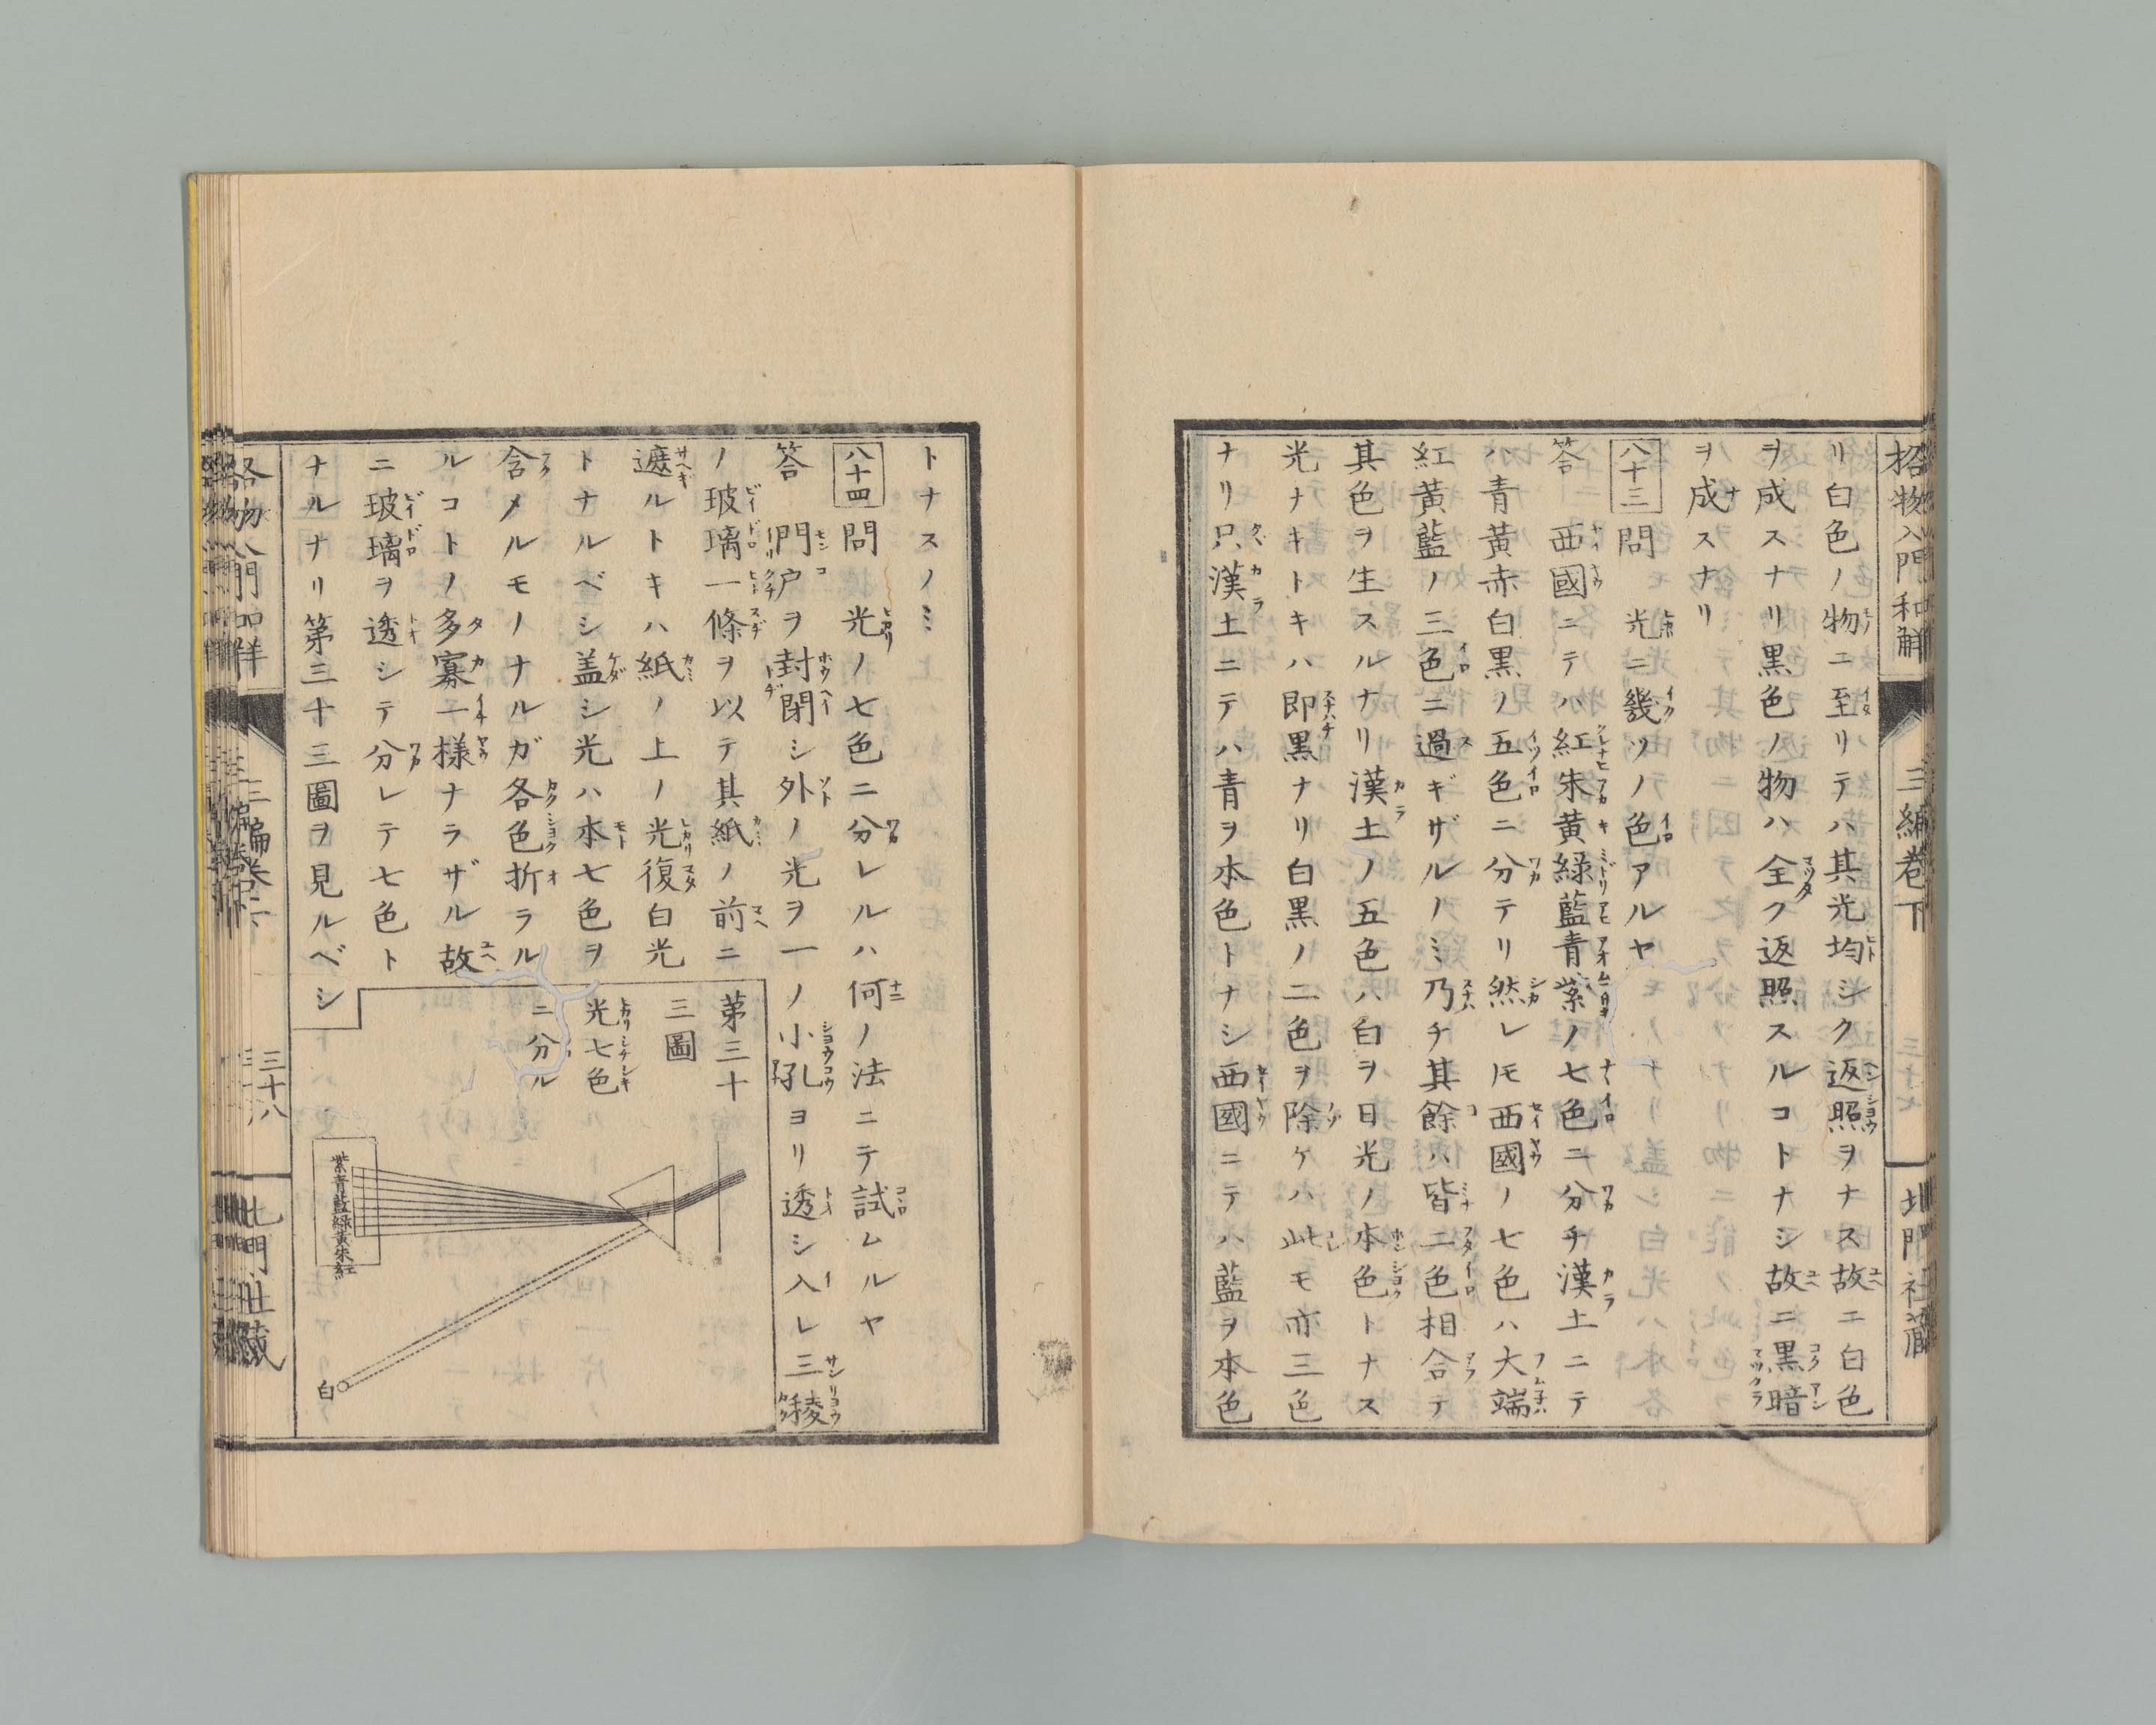 格物入門和解 三編卷下 北門社藏
リ白色ノ物ニ至リテハ其光均シク返照ヲナス故ニ白色
ヲ成スナリ黒色ノ物ハ全ク返照スルコトナシ故ニ黒暗
ヲ成スナリ
八十三 問 光ニ幾ツノ色アルヤ
答 西國ニテハ紅朱黄緑藍青紫ノ七色ニ分チ漢土ニテ
ハ青黄赤白黒ノ五色ニ分テリ然レ𪜈西國ノ七色ハ大端
紅黄藍ノ三色ニ過ギザルノミ乃チ其餘ハ皆二色相合テ
其色ヲ生スルナリ漢土ノ五色ハ白ヲ日光ノ本色トナス
光ナキトキハ即黒ナリ白黒ノ二色ヲ除ケハ此モ亦三色
ナリ只漢土ニテハ青ヲ本色トナシ西國ニテハ藍ヲ本色
トナスノミ
八十四 問 光ノ七色ニ分レルハ何ノ法ニテ試ムルヤ
答 門戸ヲ封閉シ外ノ光ヲ一ノ小孔ヨリ透シ入レ三稜
ノ玻璃一條ヲ以テ其紙ノ前ニ
遮ルトキハ紙ノ上ノ光復白光
トナルベシ盖シ光ハ本七色ヲ
含メルモノナルガ各色折ラル
ルコトノ多寡一様ナラザル故
ニ玻璃ヲ透シテ分レテ七色ト
ナルナリ第三十三圖ヲ見ルベシ
第三十
三圖
光七色
ニ分ル
紫青藍緑黄朱紅
白
三十八